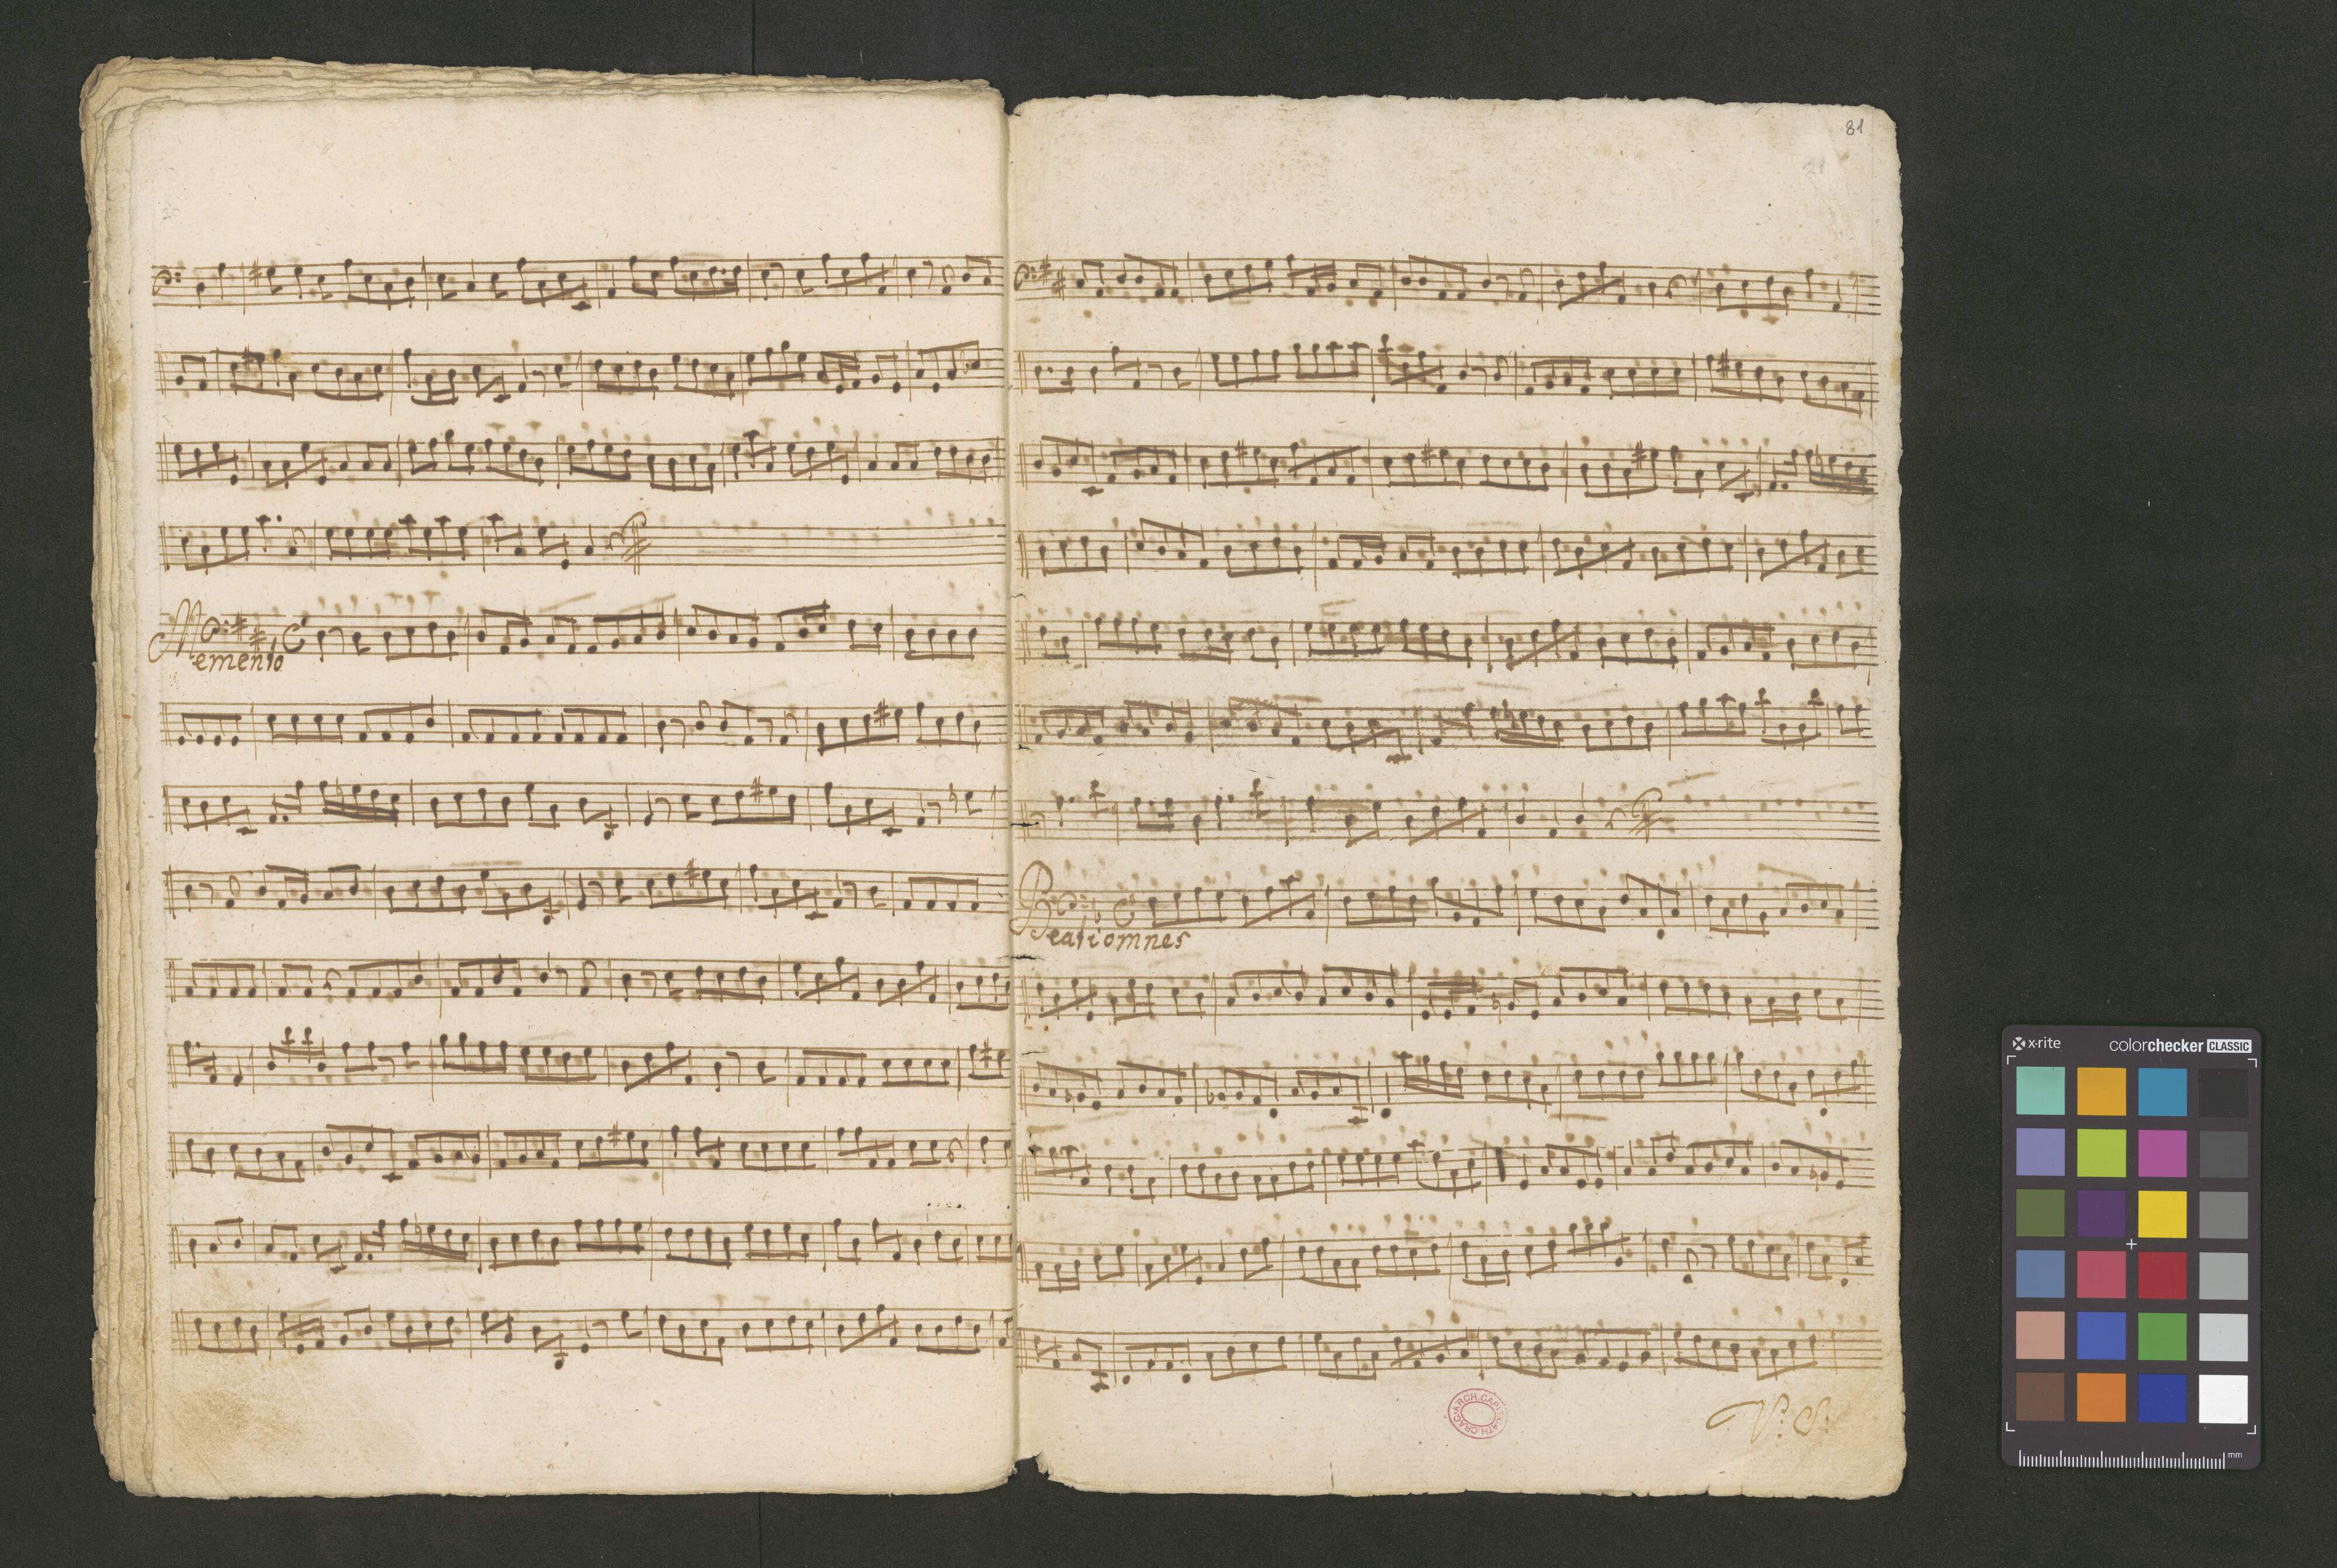 20
Memento
81
21
Beati omnes
V: S:
ARCH. CAPIT. CATH. CRAC.
x-rite
colorchecker CLASSIC
mm